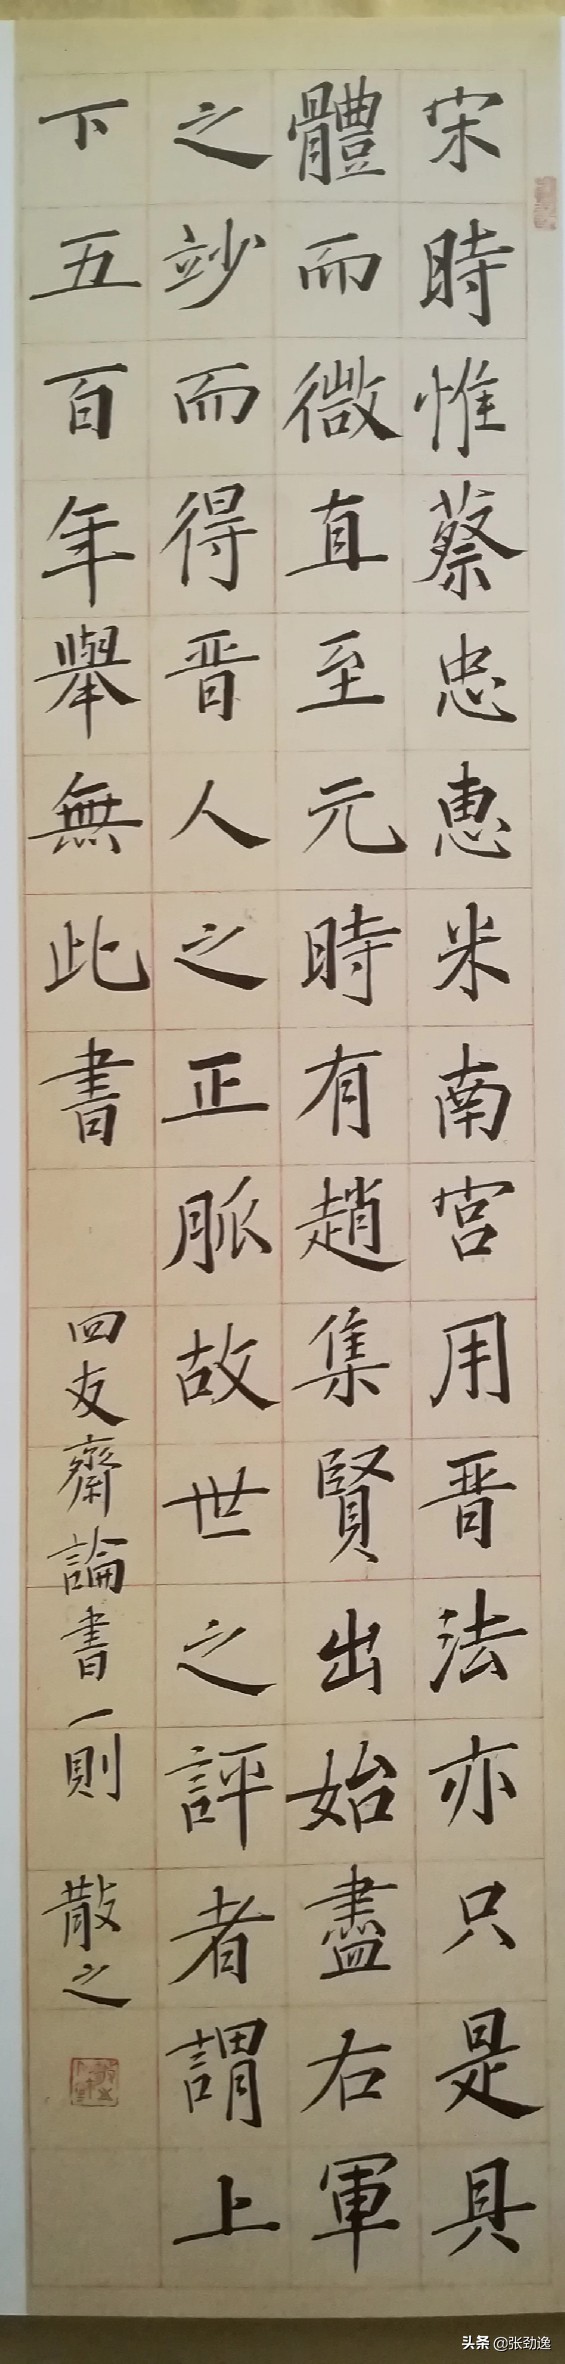 宋時惟蔡忠惠米南宮用晋法亦只是具
體而微直至元時有趙集賢出始盡右軍
之竗而得晋人之正脈故世之評者謂上
下五百年舉無此書
四友齋論書一則
散之
头条 @张劲逸